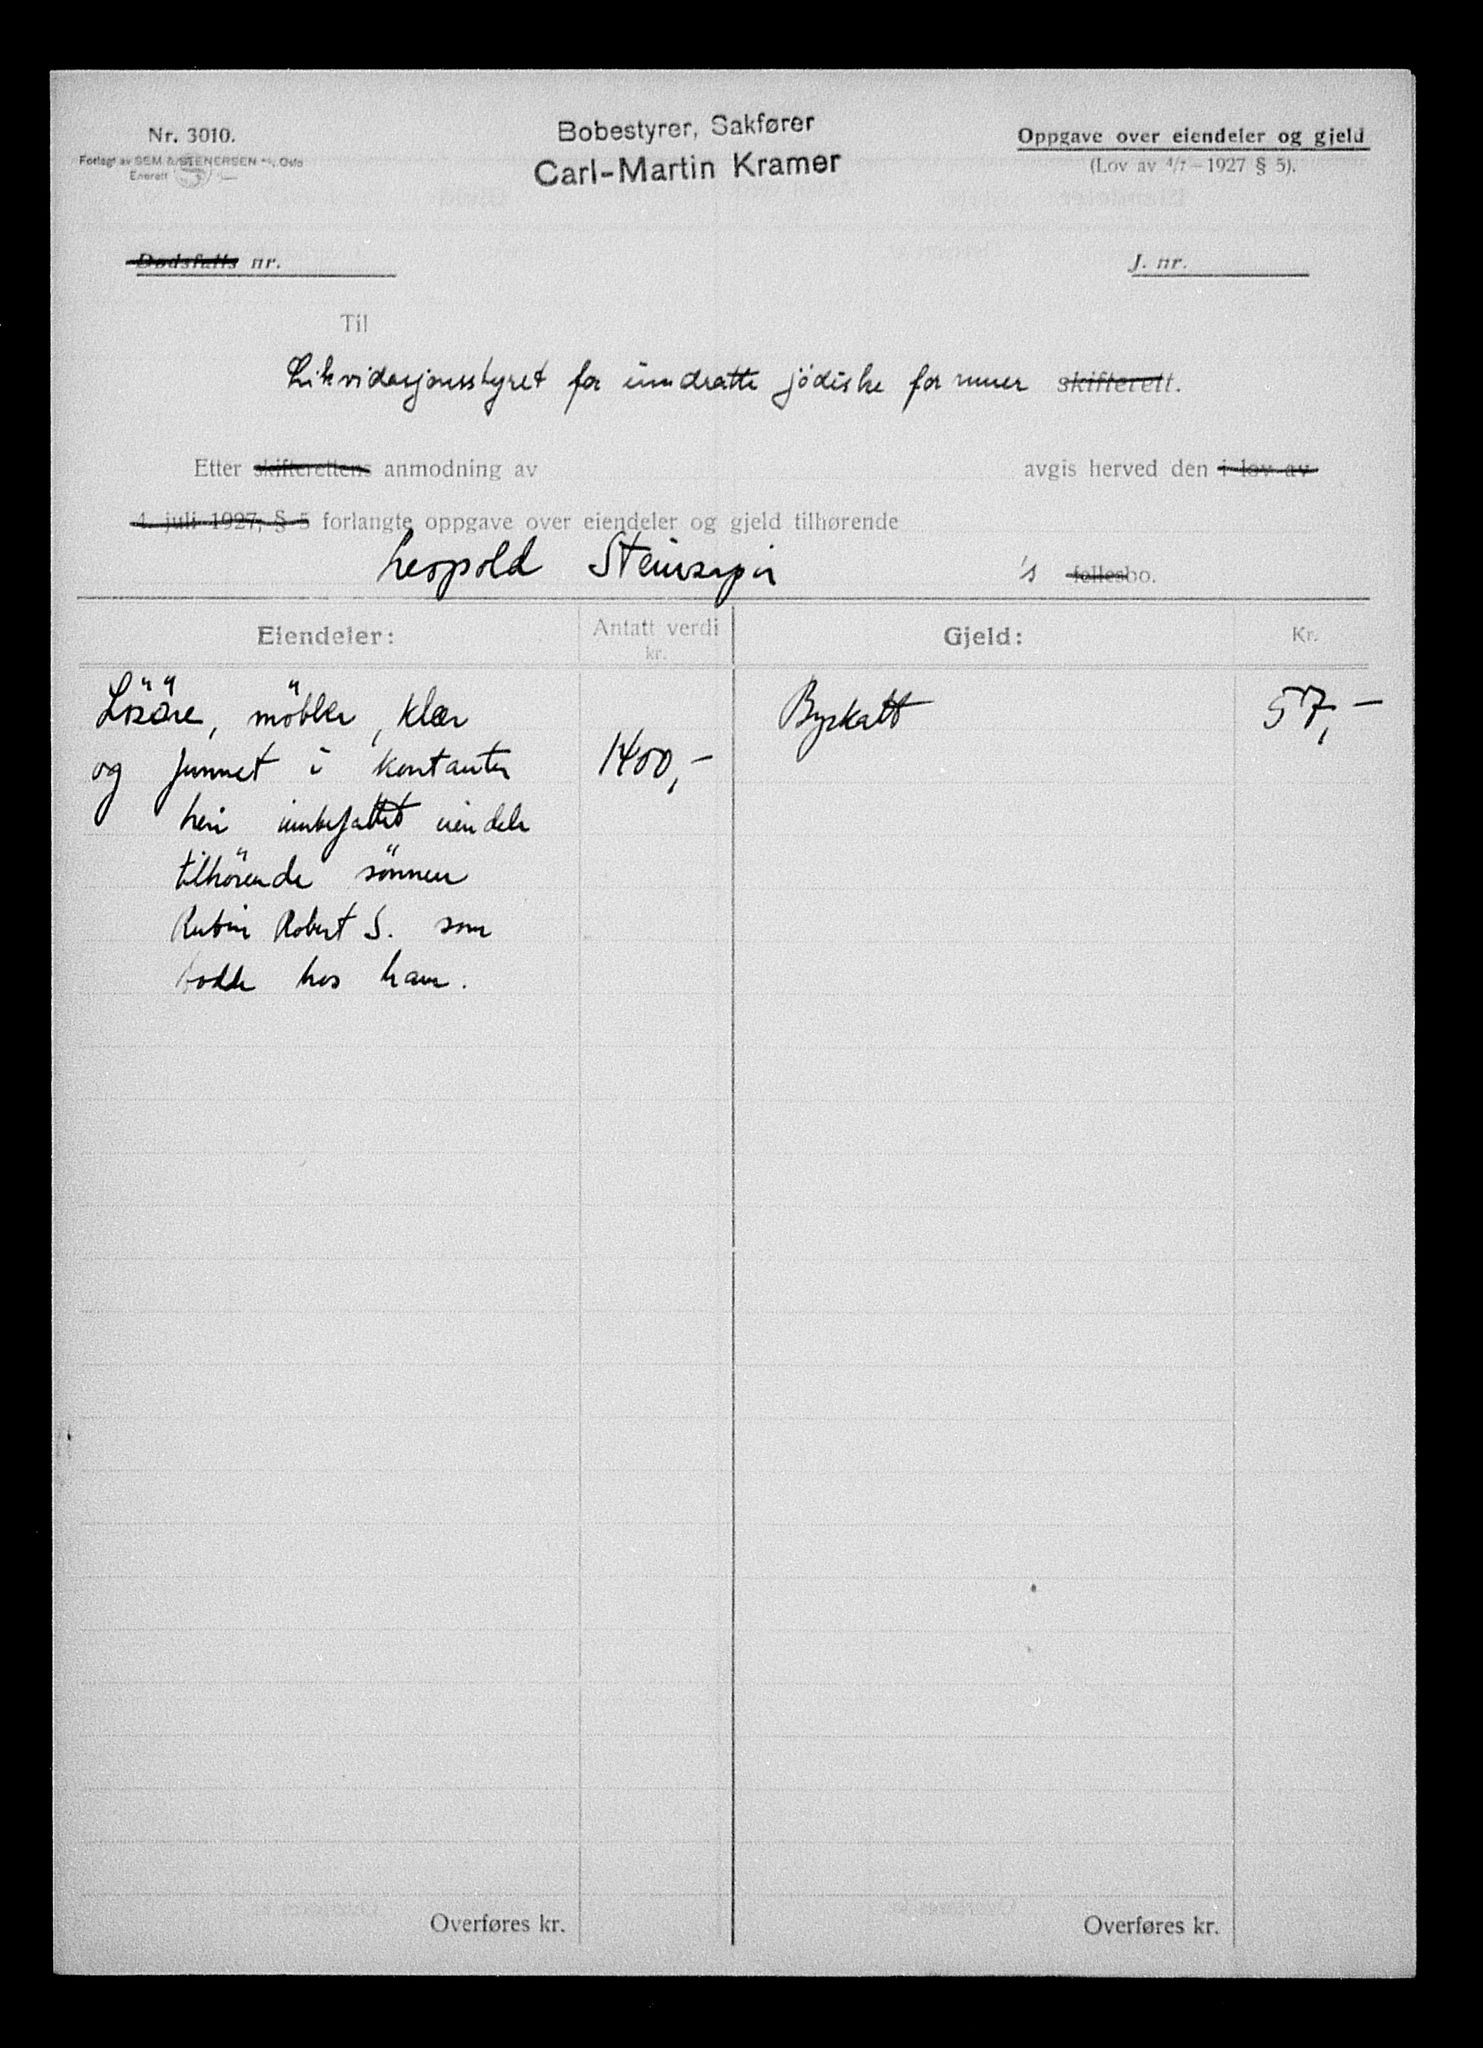 Nr. 3010.
Forlagt av SEM & STENERSEN A/S, Oslo
Enerett
Bobestyrer, Sakfører
Carl-Martin Kramer
Oppgave over eiendeler og gjeld
(Lov av 4/7 — 1927 § 5).
Dødsfalls nr.
J. nr.
Til
Likvidasjonsstyret for inndratte jödiske formuer skifterett.
Etter skifterettens anmodning av avgis herved den i lov av
4. juli 1927, § 5 forlangte oppgave over eiendeler og gjeld tilhørende
Leopold Steinsapir 's fellesbo.
Eiendeler:
Antatt verdi
kr.
Gjeld:
Kr.
Lösöre, möbler, klær
og funnet i kontanter 1400,-
heri innbefattet eiendele
tilhörende sönnen
Rubin Robert S. som
bodde hos ham.
Byskatt 57,-
Overføres kr.
Overføres kr.